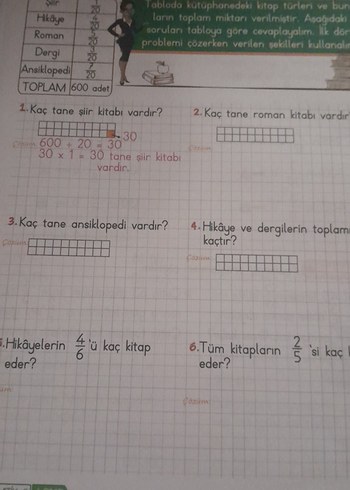 Şiir 20
Hikâye 20
Roman 20
Dergi 20
Ansiklopedi 7/20
TOPLAM 600 adet
Tabloda kütüphanedeki kitap türleri ve bun
ların toplam miktarı verilmiştir. Aşağıdaki
soruları tabloya göre cevaplayalım. İlk dör
problemi çözerken verilen şekilleri kullanalı
1. Kaç tane şiir kitabı vardır?
30
Çözüm: 600 ÷ 20 = 30
30 x 1 = 30 tane şiir kitabı
vardır.
2. Kaç tane roman kitabı vardır
Çözüm:
3. Kaç tane ansiklopedi vardır?
Çözüm:
4. Hikâye ve dergilerin toplam
kaçtır?
Çözüm:
5. Hikâyelerin 4/6 'ü kaç kitap
eder?
6. Tüm kitapların 2/5 'si kaç
eder?
Çözüm: